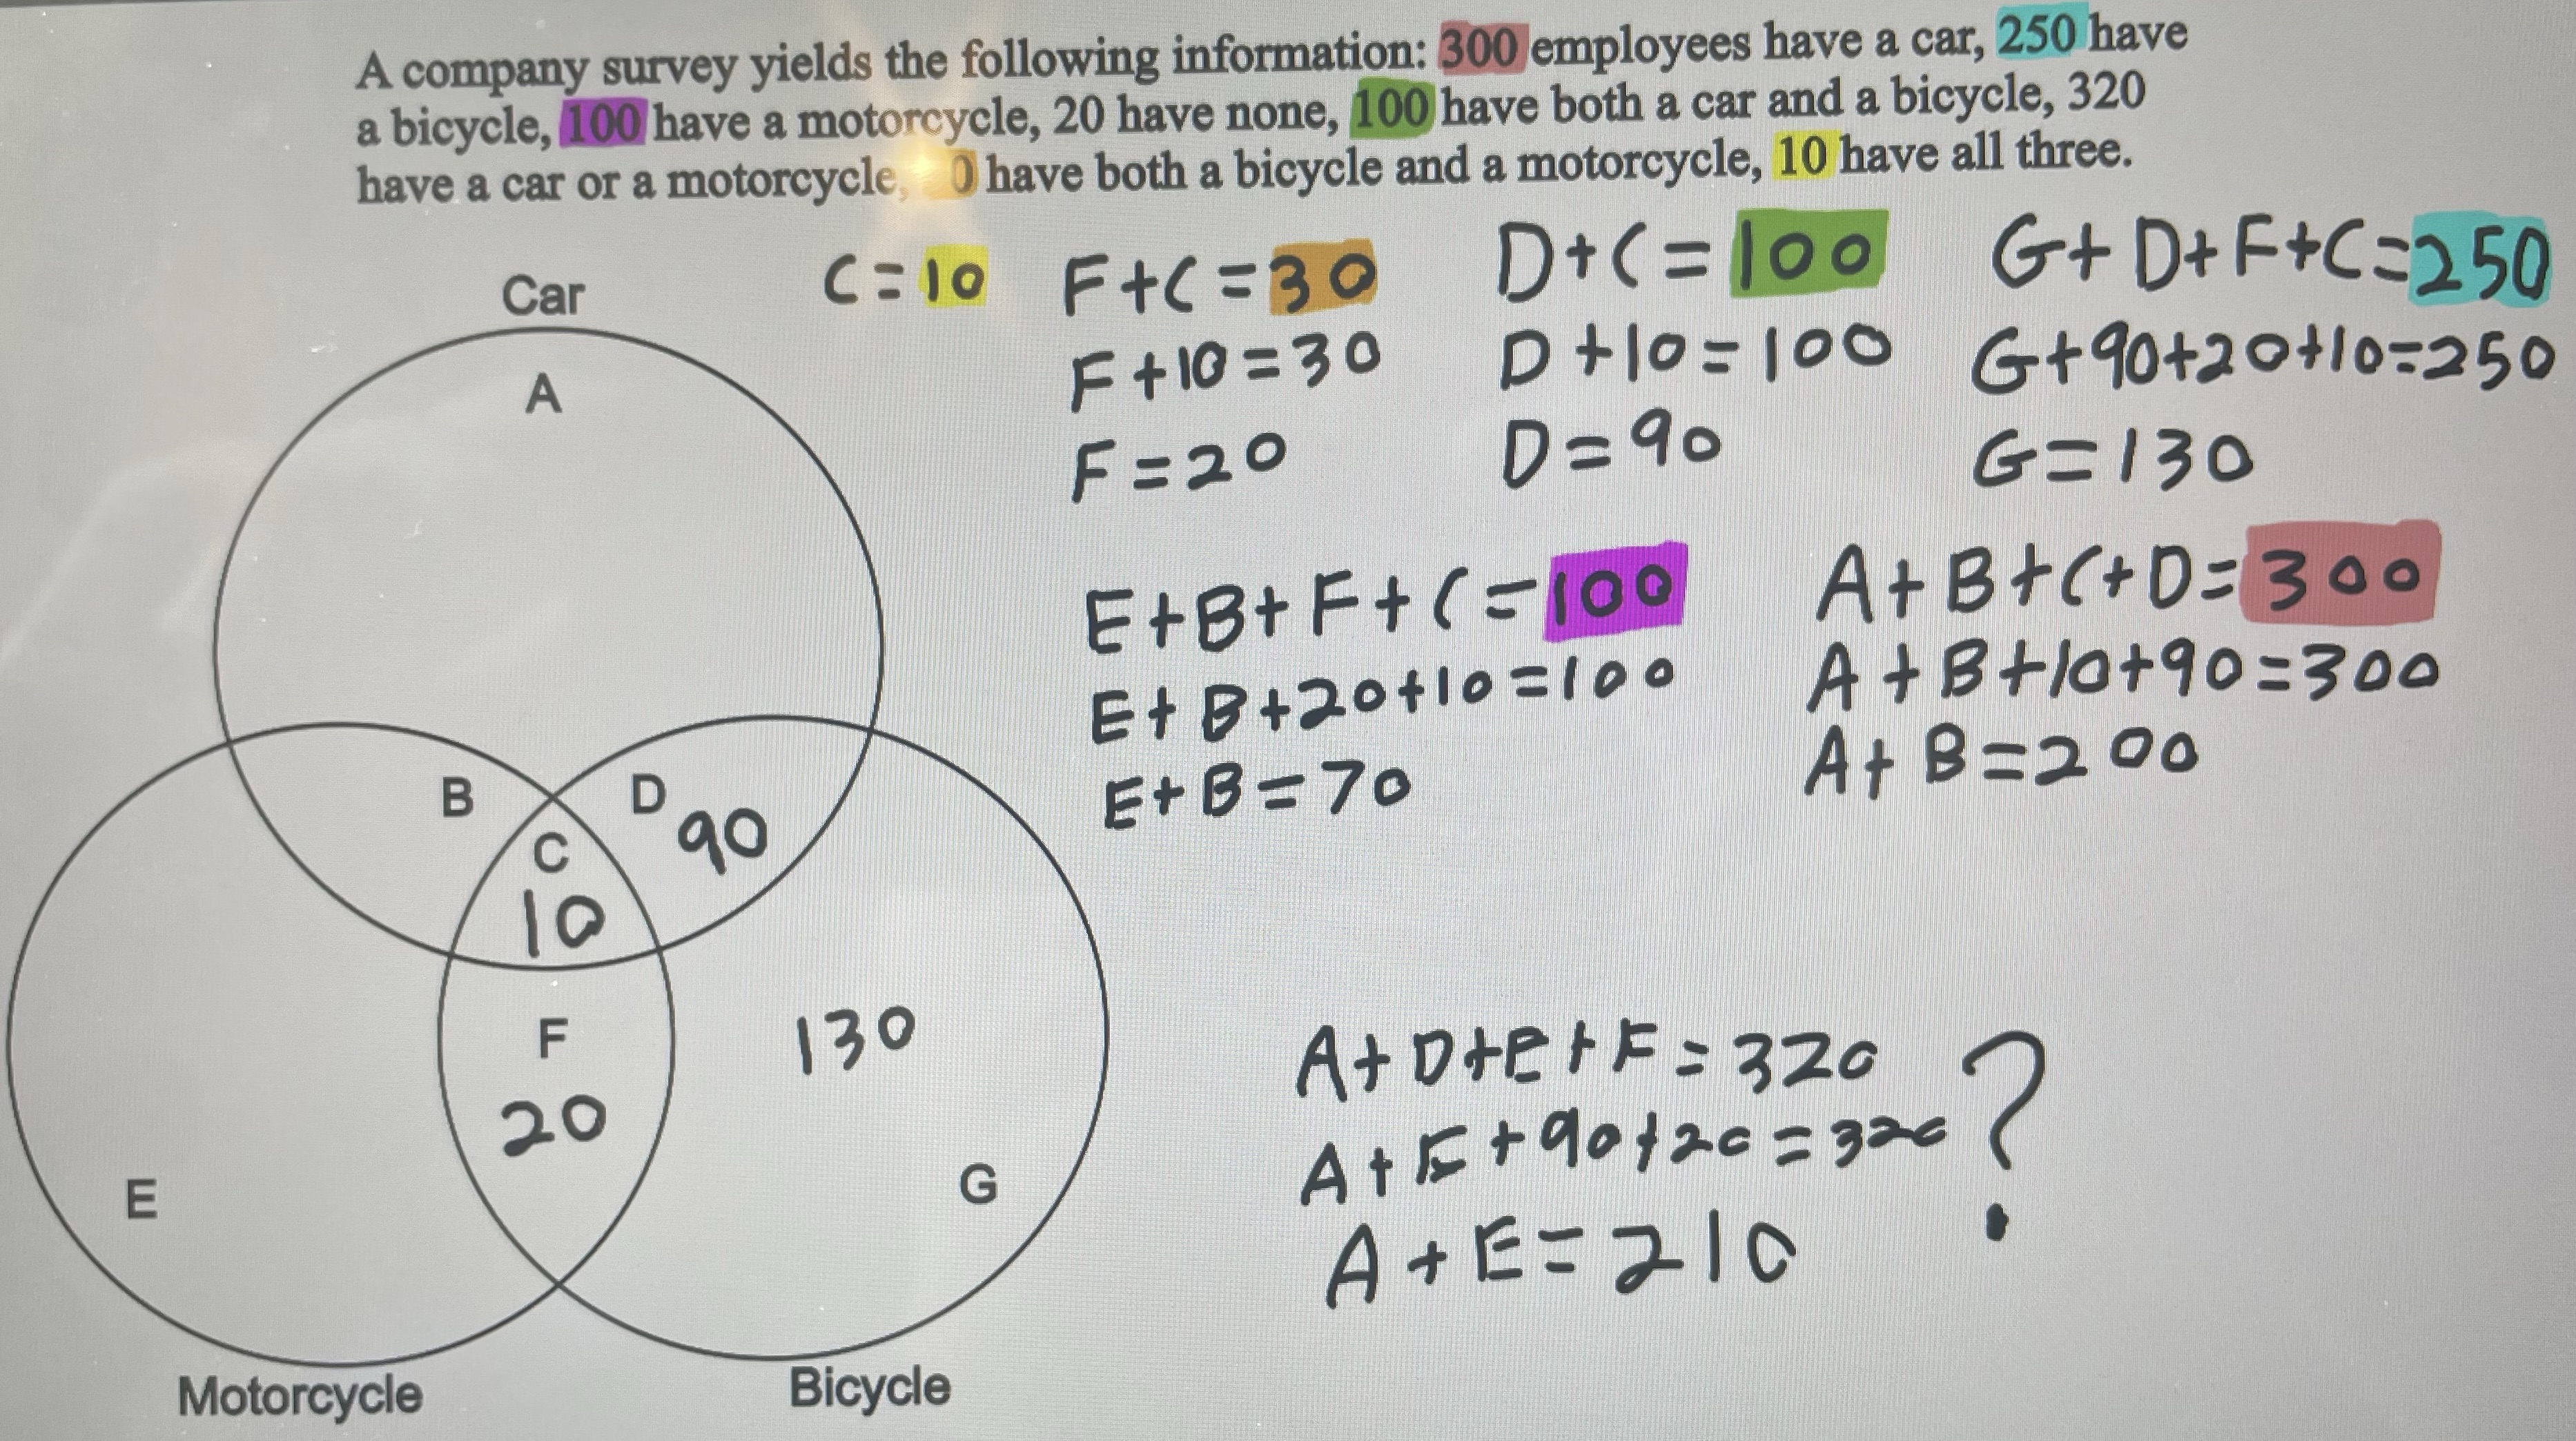 A company survey yields the following information: 300 employees have a car, 250 have
a bicycle, 100 have a motorcycle, 20 have none, 100 have both a car and a bicycle, 320
have a car or a motorcycle, 0 have both a bicycle and a motorcycle, 10 have all three.
C=10
F+C=30
F+10=30
F=20
D+C=100
D+10=100
D=90
G+D+F+C=250
G+90+20+10=250
G=130
E+B+F+C=100
E+B+20+10=100
E+B=70
A+B+C+D=300
A+B+10+90=300
A+B=200
Car
A
B
D
90
C
10
F
20
130
E
G
Motorcycle
Bicycle
A+D+E+F=320
A+E+90+20=320
A+E=210
?